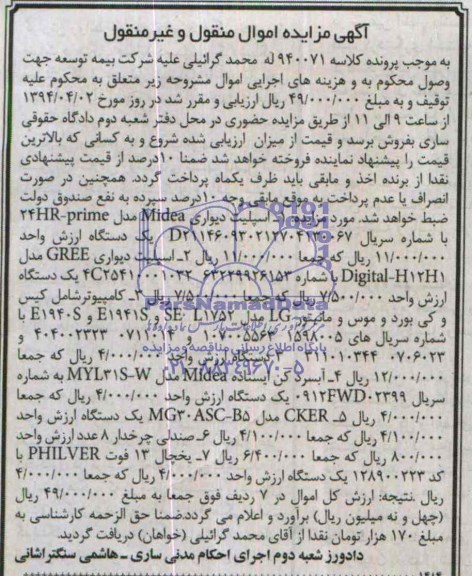 آگهی مزایده اموال منقول و غیرمنقول
به موجب پرونده کلاسه ۹۴۰۰۷۱ له محمد گرائیلی علیه شرکت بیمه توسعه جهت
وصول محکوم به و هزینه های اجرایی اموال مشروحه زیر متعلق به محکوم علیه
توقیف و به مبلغ ۴۹/۰۰۰/۰۰۰ ریال ارزیابی و مقرر شد در روز مورخ ۱۳۹۴/۰۴/۰۲
از ساعت ۹ الی ۱۱ از طریق مزایده حضوری در محل دفتر شعبه دوم دادگاه حقوقی
ساری بفروش برسد و قیمت از میزان ارزیابی شده شروع و به کسانی که بالاترین
قیمت را پیشنهاد نماینده فروخته خواهد شد ضمنا ۱۰درصد از قیمت پیشنهادی
نقدا از برنده اخذ و مابقی باید ظرف یکماه پرداخت گردد. همچنین در صورت
انصراف یا عدم پرداخت در موقع مابقی وجه ۱۰درصد سپرده به نفع صندوق دولت
ضبط خواهد شد. مورد مزایده ۱ـ اسپلیت دیواری Midea مدل ۲۴HR-prime
با شماره سریال یک دستگاه ارزش واحد
۱۱/۰۰۰/۰۰۰ ریال که جمعا ۱۱/۰۰۰/۰۰۰ ریال ۲ـ اسپلیت دیواری GREE مدل
Digital-H۱۲H۱ با شماره یک دستگاه
ارزش واحد ۷/۵۰۰/۰۰۰ ریال که جمعا ۷/۵۰۰/۰۰۰ ریال ۳ـ کامپیوترشامل کیس
و کی بورد و موس و مانیتور LG مدل SE L۱۷۵۲ و E۱۹۴۱S و E۱۹۴۰S با
شماره سریال های و
۰۷۰۶۰۲۳ ۳ دستگاه ارزش واحد ۴/۰۰۰/۰۰۰ ریال که جمعا
۱۲/۰۰۰/۰۰۰ ریال ۴ـ آبسرد کن ایستاده Midea مدل MYL۳۱S-W به شماره
سریال ۰۹۱۲FWD۰۲۳۹۹ یک دستگاه ارزش واحد ۴/۰۰۰/۰۰۰ ریال که جمعا
۴/۰۰۰/۰۰۰ ریال ۵ـ CKER مدل MG۳۰ASC-B۵ یک دستگاه ارزش واحد
۴/۱۰۰/۰۰۰ ریال که جمعا ۴/۱۰۰/۰۰۰ ریال ۶ـ صندلی چرخدار ۸ عدد ارزش واحد
۸۰۰/۰۰۰ ریال که جمعا ۶/۴۰۰/۰۰۰ ریال ۷ـ یخچال ۱۳ فوت PHILVER با
کد ۱۲۸۹۰۰۲۲۳ یک دستگاه ارزش واحد ۴/۰۰۰/۰۰۰ ریال که جمعا ۴/۰۰۰/۰۰۰
ریال .نتیجه: ارزش کل اموال در ۷ ردیف فوق جمعا به مبلغ ۴۹/۰۰۰/۰۰۰ ریال
(چهل و نه میلیون ریال) برآورد و اعلام می گردد.ضمنا حق الزحمه کارشناسی به
مبلغ ۱۷۰ هزار تومان نقدا از آقای محمد گرائیلی (خواهان) دریافت گردید.
دادورز شعبه دوم اجرای احکام مدنی ساری ـ هاشمی سنگتراشانی
ParsNamadData
پایگاه اطلاع رسانی مناقصه و مزایده